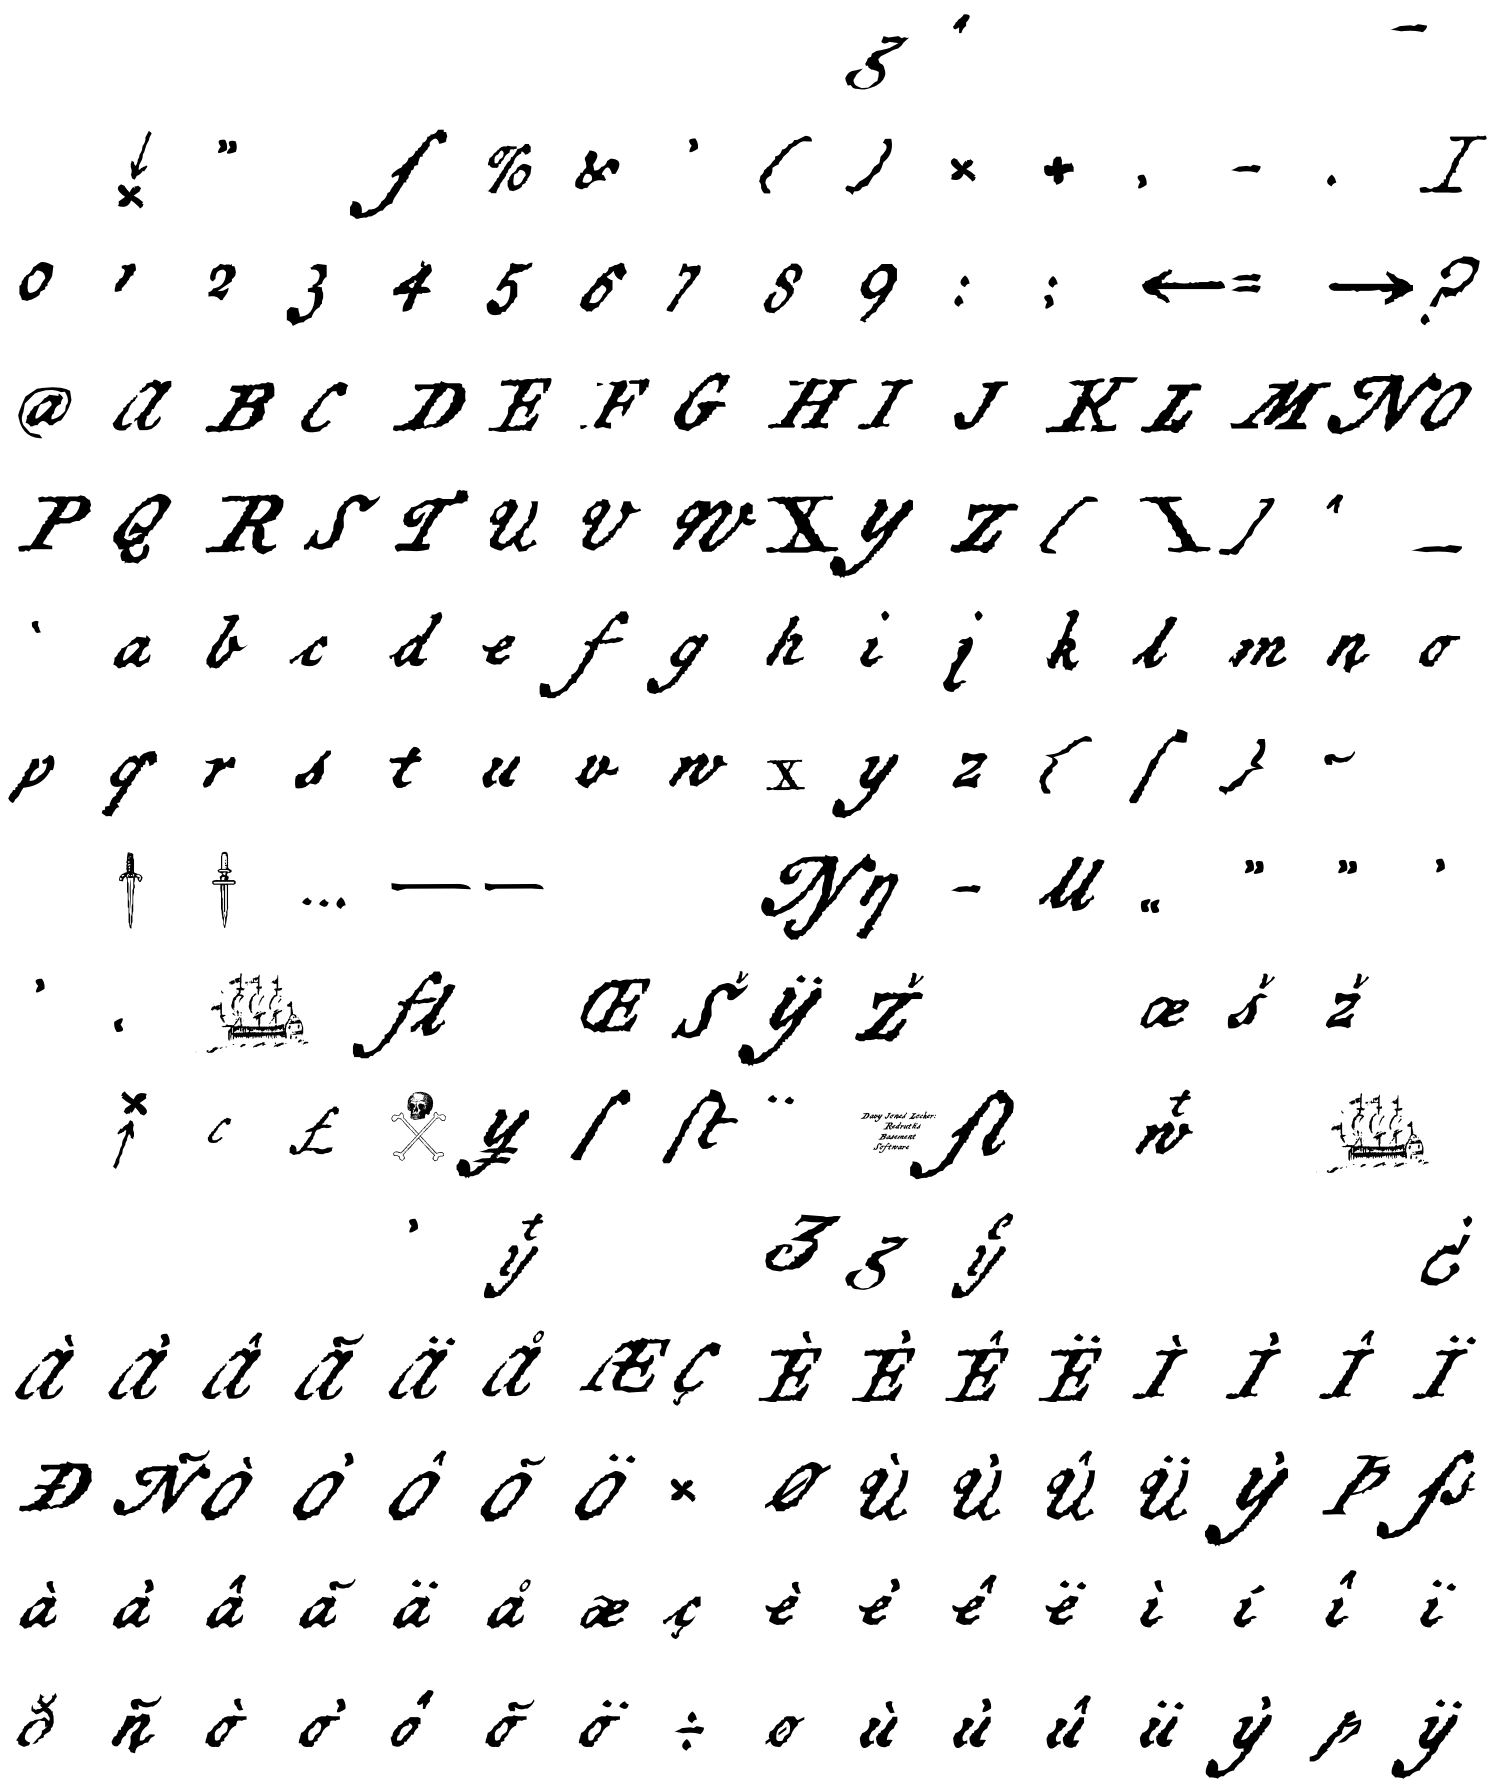 ʒ ˆ ¯
↙ × ” ʃ % & ’ ( ) × + , - . I
0 1 2 3 4 5 6 7 8 9 : ; ← = → ?
@ A B C D E F G H I J K L M N O
P Q R S T U V W X Y Z ( \ ) ˆ _
‘ a b c d e f g h i j k l m n o
p q r s t u v w x y z { ſ } ~
† ‡ … — – Ŋ η - U „ ” ” ’
’ ‚ fl Œ Š Ÿ Ž œ š ž
× ↑ c £ ¥ ſ ſt ¨ Davy Jones Locker: Redruths Basement Software ſl wͭ
’ yͭ Ʒ ʒ yͤ ¿
À Á Â Ã Ä Å Æ Ç È É Ê Ë Ì Í Î Ï
Ð Ñ Ò Ó Ô Õ Ö × Ø Ù Ú Û Ü Ý Þ ß
à á â ã ä å æ ç è é ê ë ì í î ï
ð ñ ò ó ô õ ö ÷ ø ù ú û ü ý þ ÿ